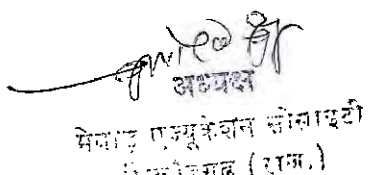 अध्यक्ष
मेवाड़ एज्यूकेशन सोसाइटी
चित्तौड़गढ़ (राज.)